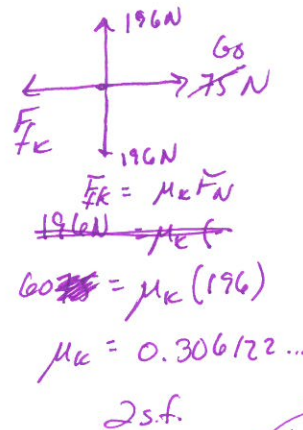 196N
60
75 N
Ffk
196N
Ffk = μk FN
196N = μk (
60 = μk (196)
μk = 0.306122...
2 s.f.